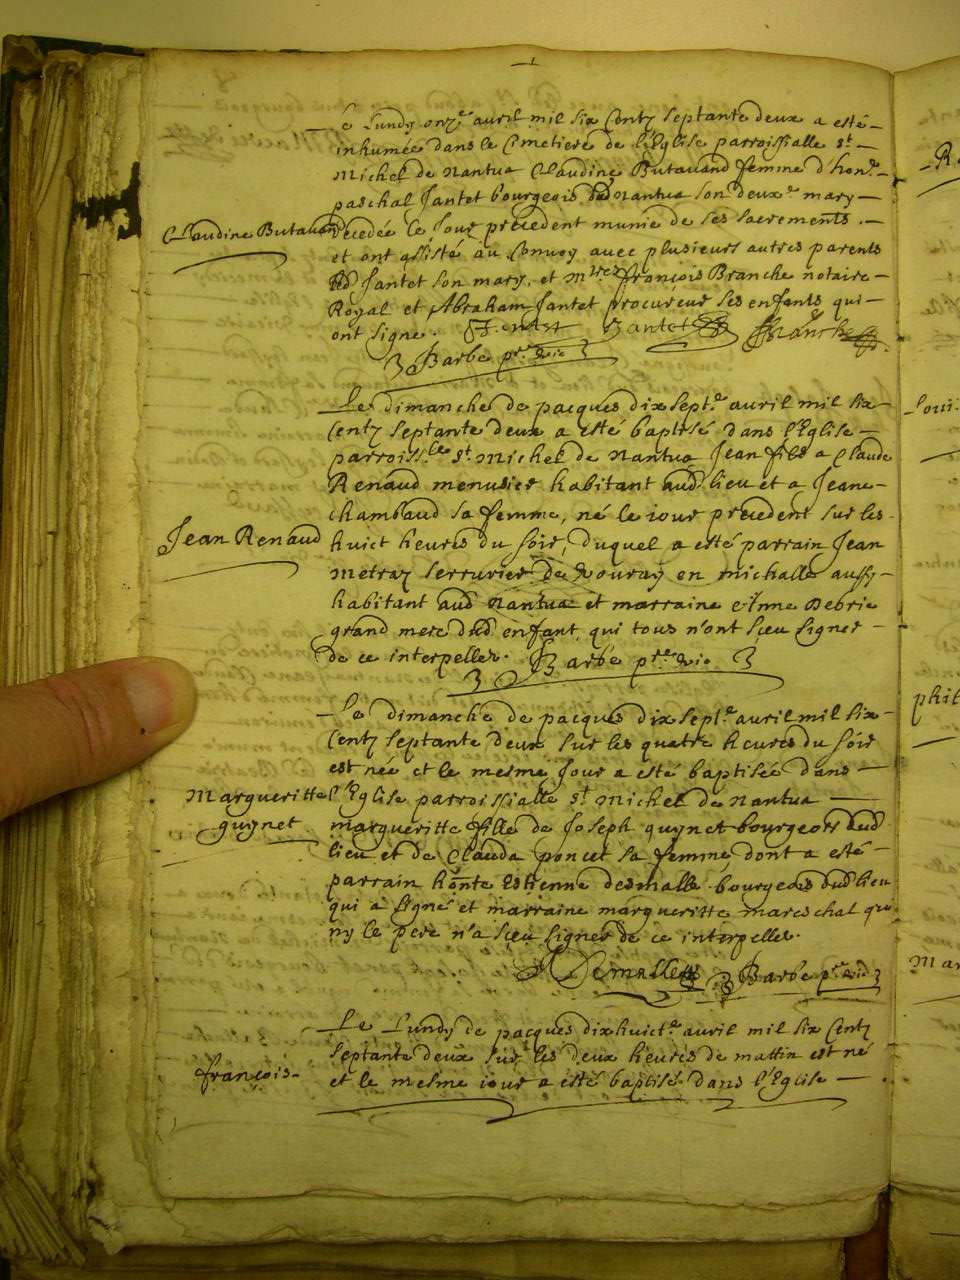 Le Lundy onz.e avril mil six Centz septante deux a esté
inhumée dans le Cimetiere de l'Eglise parroissialle st
Michel de Nantua Claudine Butavand femme d'hon.e
paschal Jantet bourgeois dud Nantua son deux.e mary
Claudine Butavand
decedée le Jour precedent munie de ses sacrements .
et ont assisté au Convoy avec plusieurs autres parents
led Jantet son mary, et m.res françois Branche notaire
Royal et Abraham Jantet procureur ses enfants qui
ont signe . Jantet Jantet Branche
Barbe p.re vic
Le dimanche de pacques dix sept.e avril mil six
Centz septante deux a esté baptisé dans l'Eglise
parroiss.lle st. Michel de Nantua Jean fils a Claude
Renaud menusier habitant aud. lieu et a Jeane
chambaud sa femme, né le iour precedent sur les
Jean Renaud
huict heures du soir, duquel a esté parrain Jean
Metraz serrurier de vouray en michalle aussy
habitant aud Nantua et marraine Anne Debrie
grand mere dud enfant, qui tous n'ont sceu signer
de ce interpellez . Barbe p.re vic
Le dimanche de pacques dix sept.e avril mil six
Centz septante deux sur les quatre heures du soir
est née et le mesme Jour a esté baptisée dans
Margueritte
guynet
l'Eglise parroissialle st Michel de Nantua
margueritte fille de Joseph guynet bourgeois dud
lieu et de Clauda poncet sa femme, dont a esté
parrain honte Estienne desmalle bourgeois dud lieu
qui a signé et marraine margueritte mareschal qui
ny le pere n'a sceu signer de ce interpellez.
Demalle Barbe p.re vic
Le Lundy de pacques dix huict.e avril mil six Centz
septante deux sur les deux heures de mattin est né
françois
et le mesme iour a esté baptisé dans l'Eglise